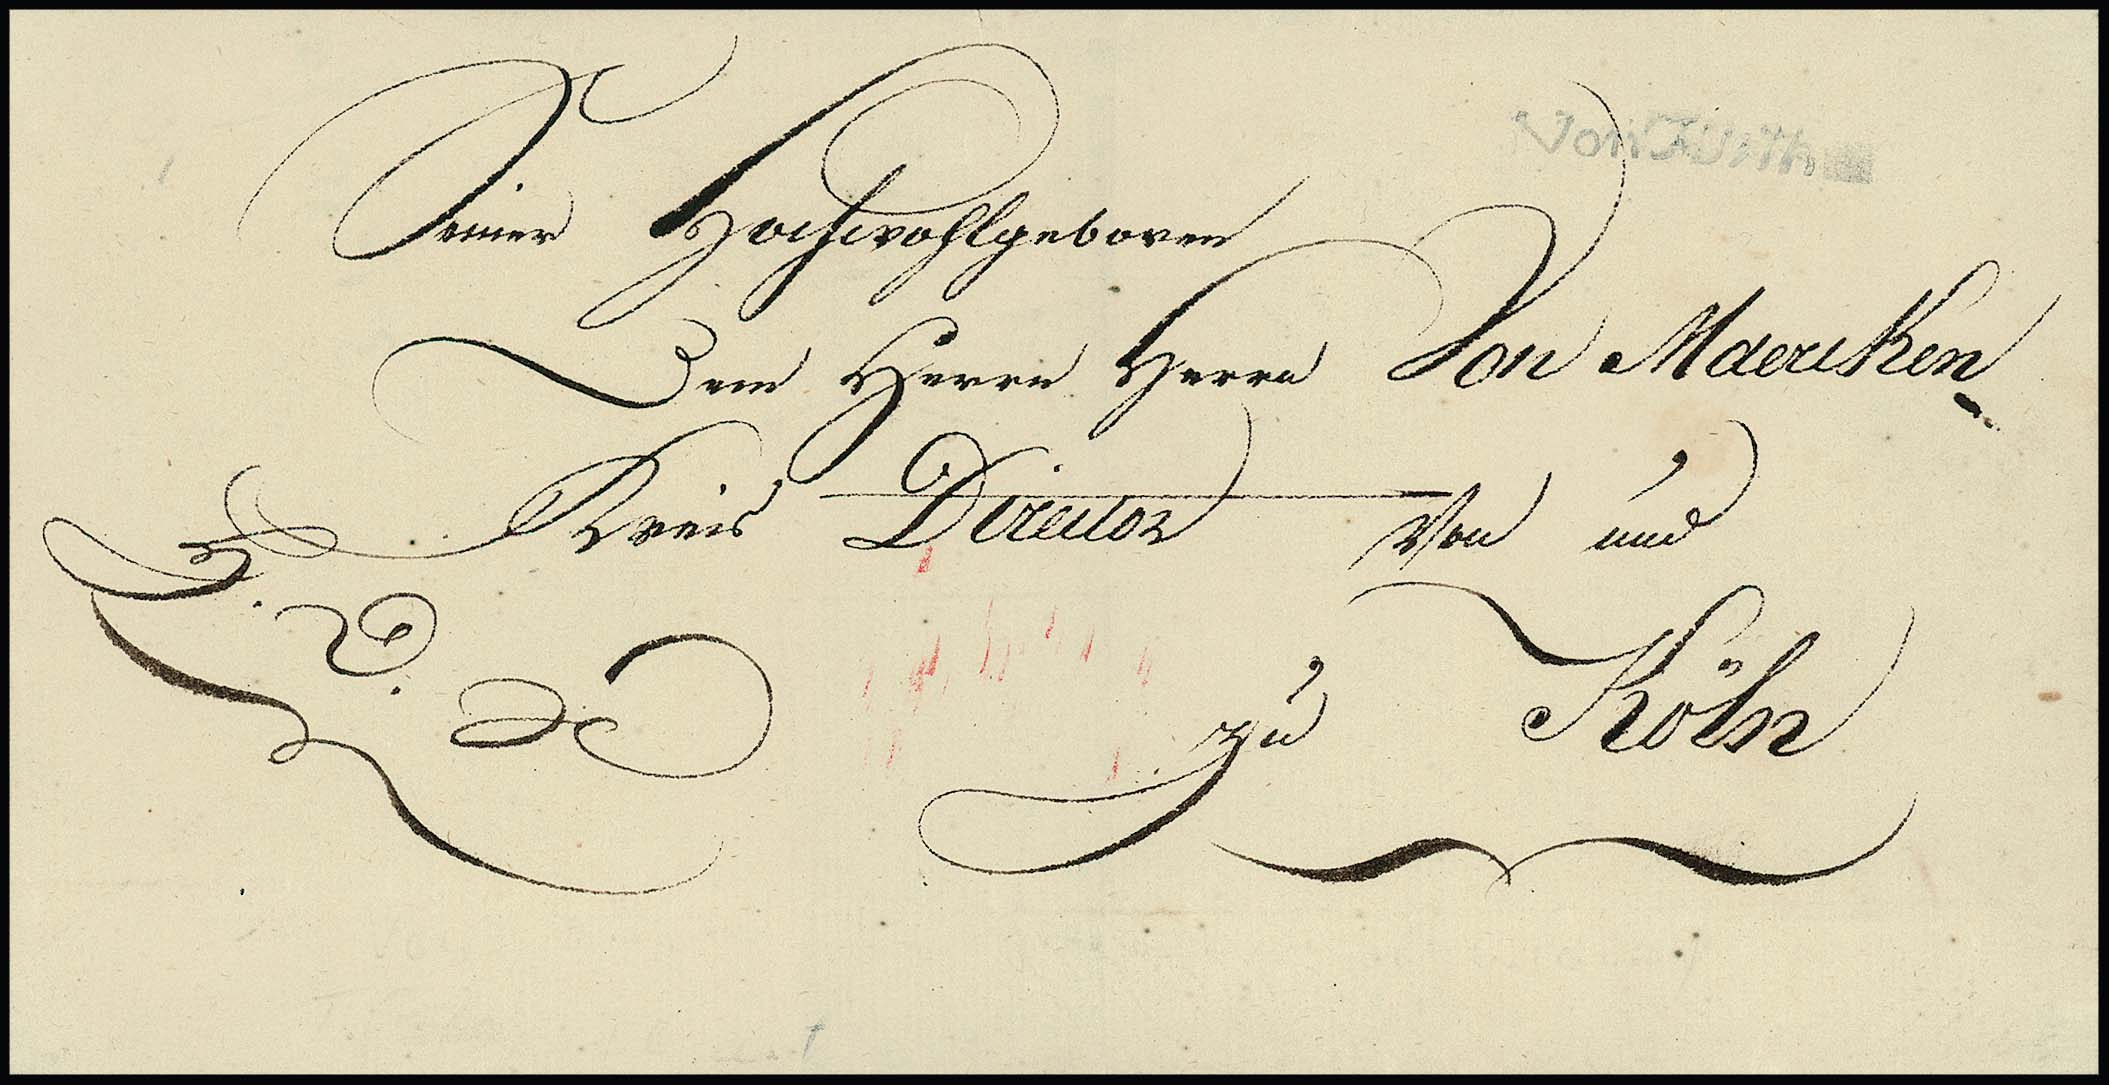 Von Fürth
Seiner Hochwohlgeboren
Dem Herrn Herrn Von Maercken
Kreis Director Von und
zu Köln